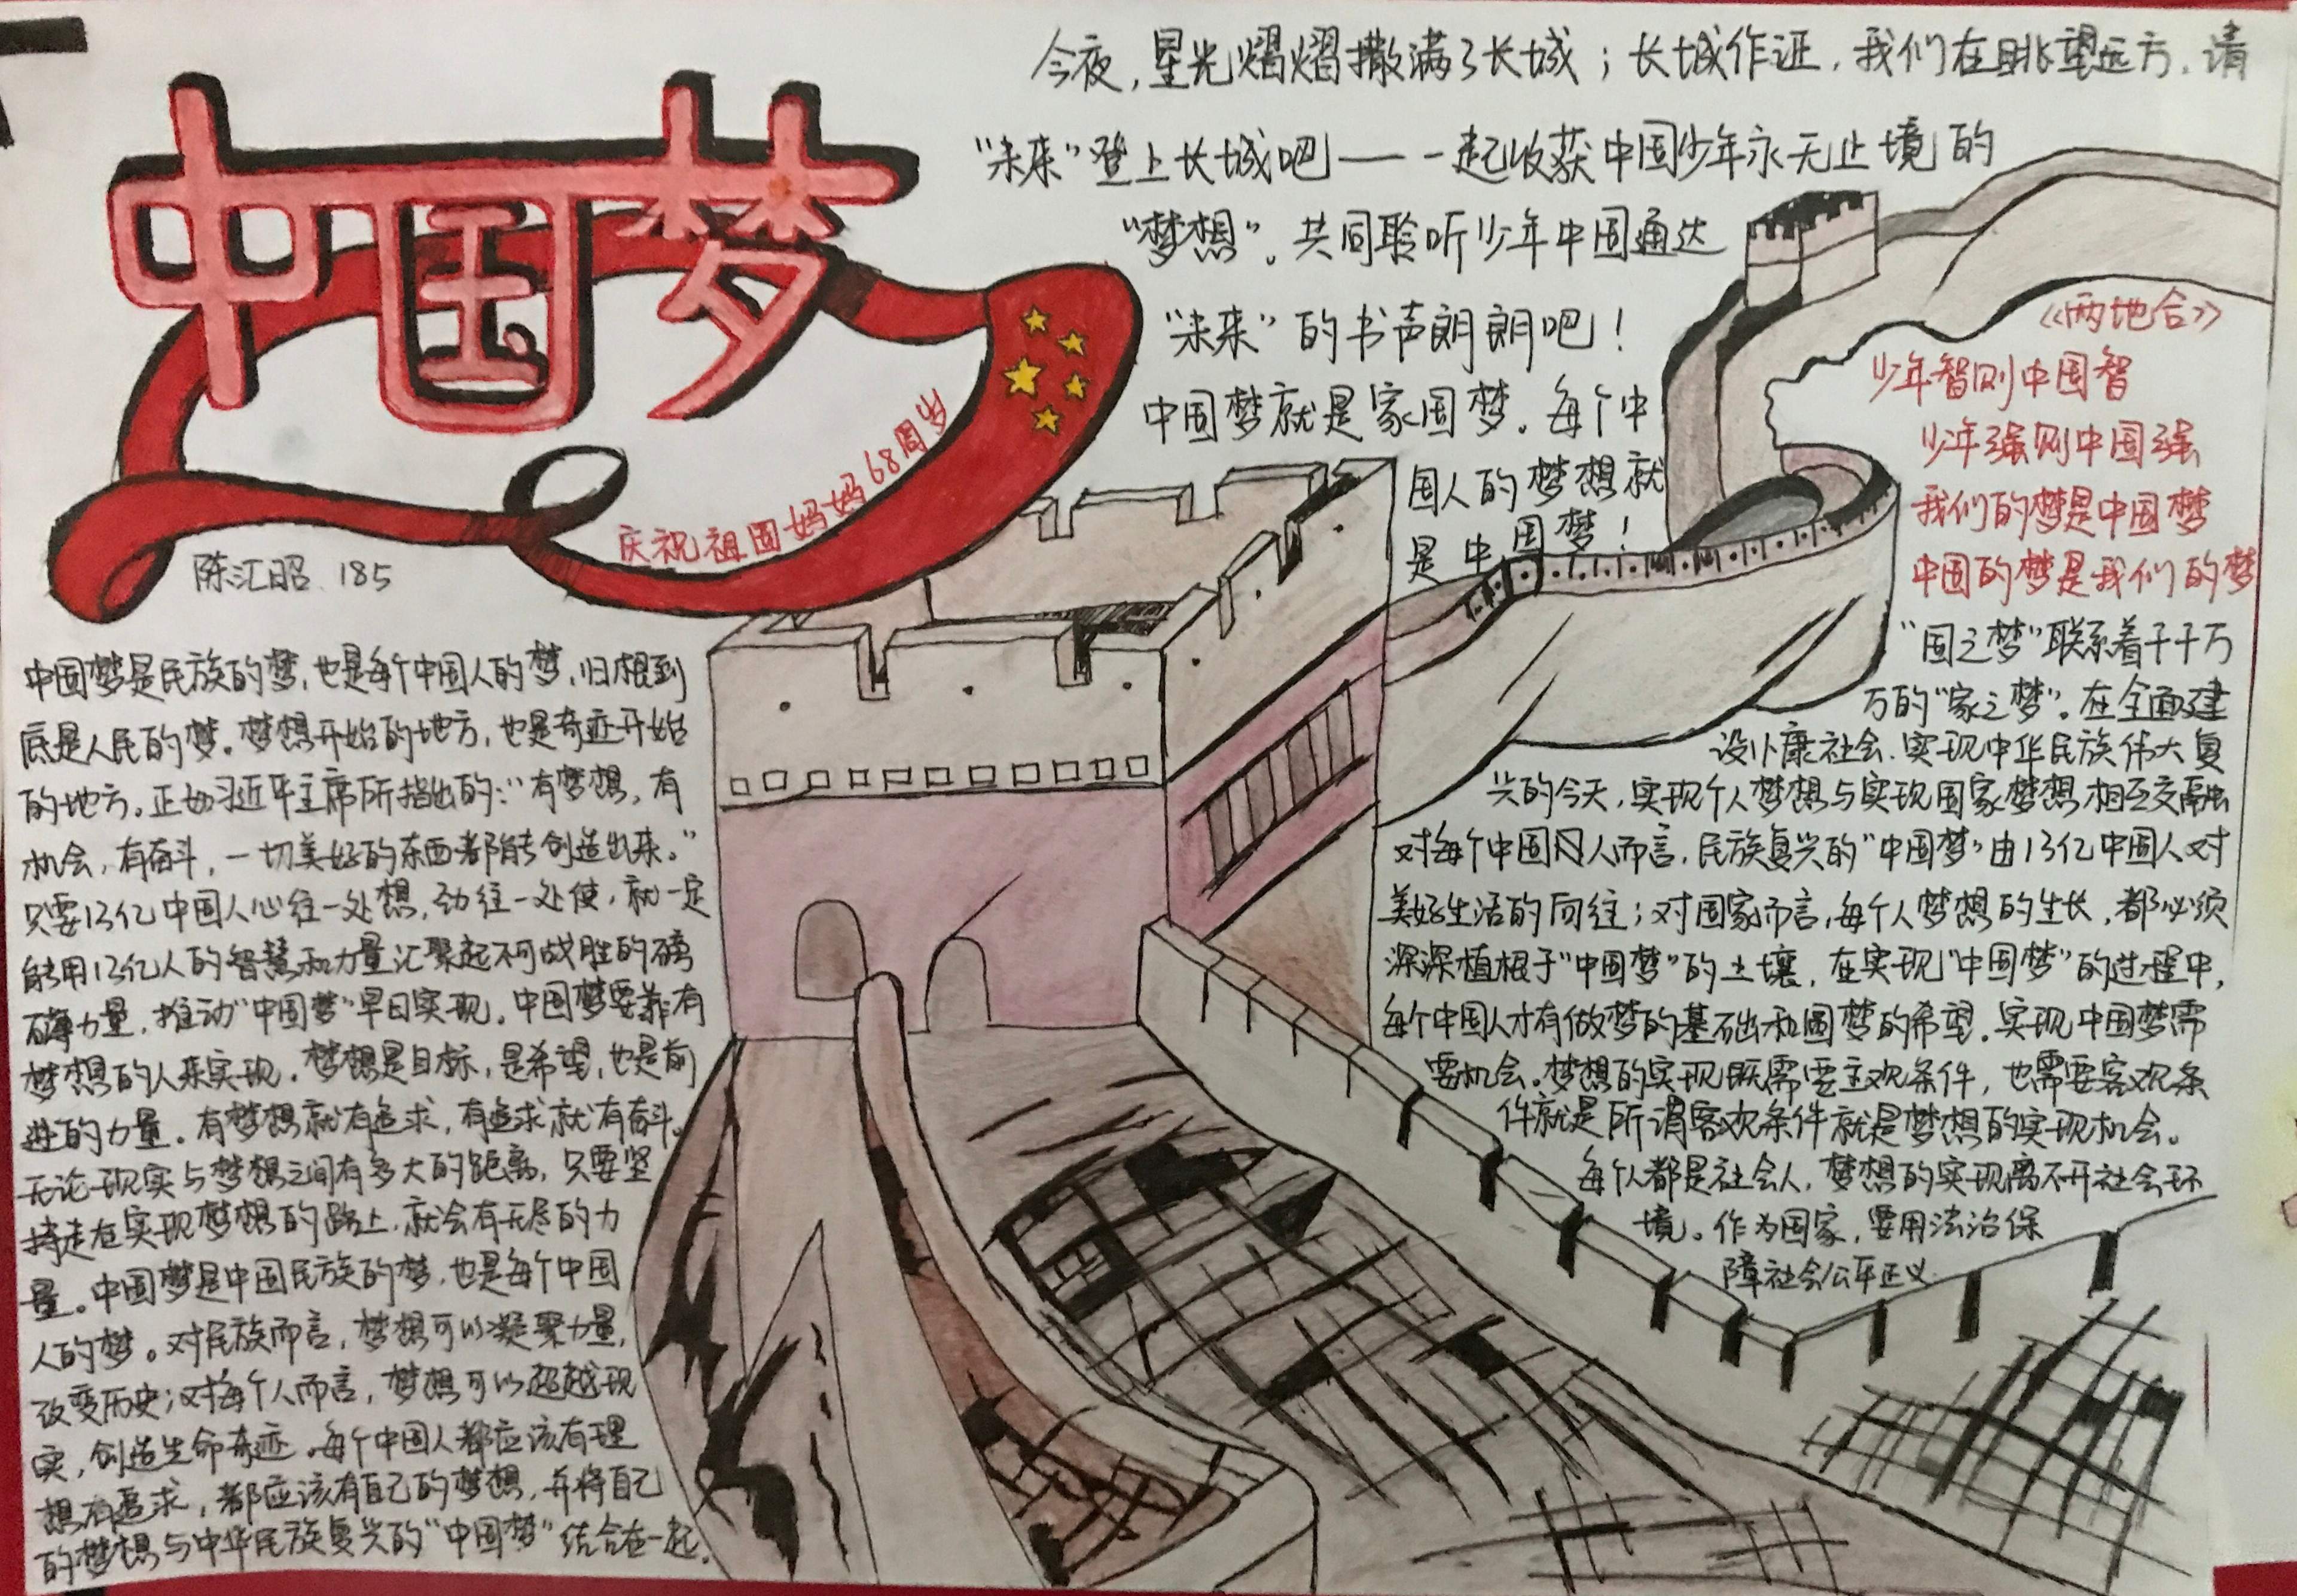 中国梦
庆祝祖国妈妈68周岁
陈汇昭 185
今夜，星光熠熠撒满了长城；长城作证，我们在眺望远方，请
“未来”登上长城吧——一起收获中国少年永无止境的
“梦想”。共同聆听少年中国通达
“未来”的书声朗朗吧！
中国梦就是家国梦。每个中
国人的梦想就
是中国梦！
《两地合》
少年智则中国智
少年强则中国强
我们的梦是中国梦
中国的梦是我们的梦
中国梦是民族的梦，也是每个中国人的梦，归根到
底是人民的梦。梦想开始的地方，也是奇迹开始
的地方。正如习近平主席所指出的：“有梦想，有
机会，有奋斗，一切美好的东西都能创造出来。”
只要13亿中国人心往一处想，劲往一处使，就一定
能用13亿人的智慧和力量汇聚起不可战胜的磅
礴力量，推动“中国梦”早日实现。中国梦要靠有
梦想的人来实现。梦想是目标，是希望，也是前
进的力量。有梦想就有追求，有追求就有奋斗。
无论现实与梦想之间有多大的距离，只要坚
持走在实现梦想的路上，就会有无尽的力
量。中国梦是中国民族的梦，也是每个中国
人的梦。对民族而言，梦想可以凝聚力量，
改变历史；对每个人而言，梦想可以超越现
实，创造生命奇迹。每个中国人都应该有理
想有追求，都应该有自己的梦想，并将自己
的梦想与中华民族复兴的“中国梦”结合在一起。
“国之梦”联系着千千万
万的“家之梦”。在全面建
设小康社会、实现中华民族伟大复
兴的今天，实现个人梦想与实现国家梦想相互交融
对每个中国人而言，民族复兴的“中国梦”由13亿中国人对
美好生活的向往；对国家而言，每个人梦想的生长，都必须
深深植根于“中国梦”的土壤，在实现“中国梦”的过程中，
每个中国人才有做梦的基础和圆梦的希望。实现中国梦需
要机会。梦想的实现既需要主观条件，也需要客观条
件就是所谓客观条件就是梦想的实现机会。
每个人都是社会人，梦想的实现离不开社会环
境。作为国家，要用法治保
障社会公平正义